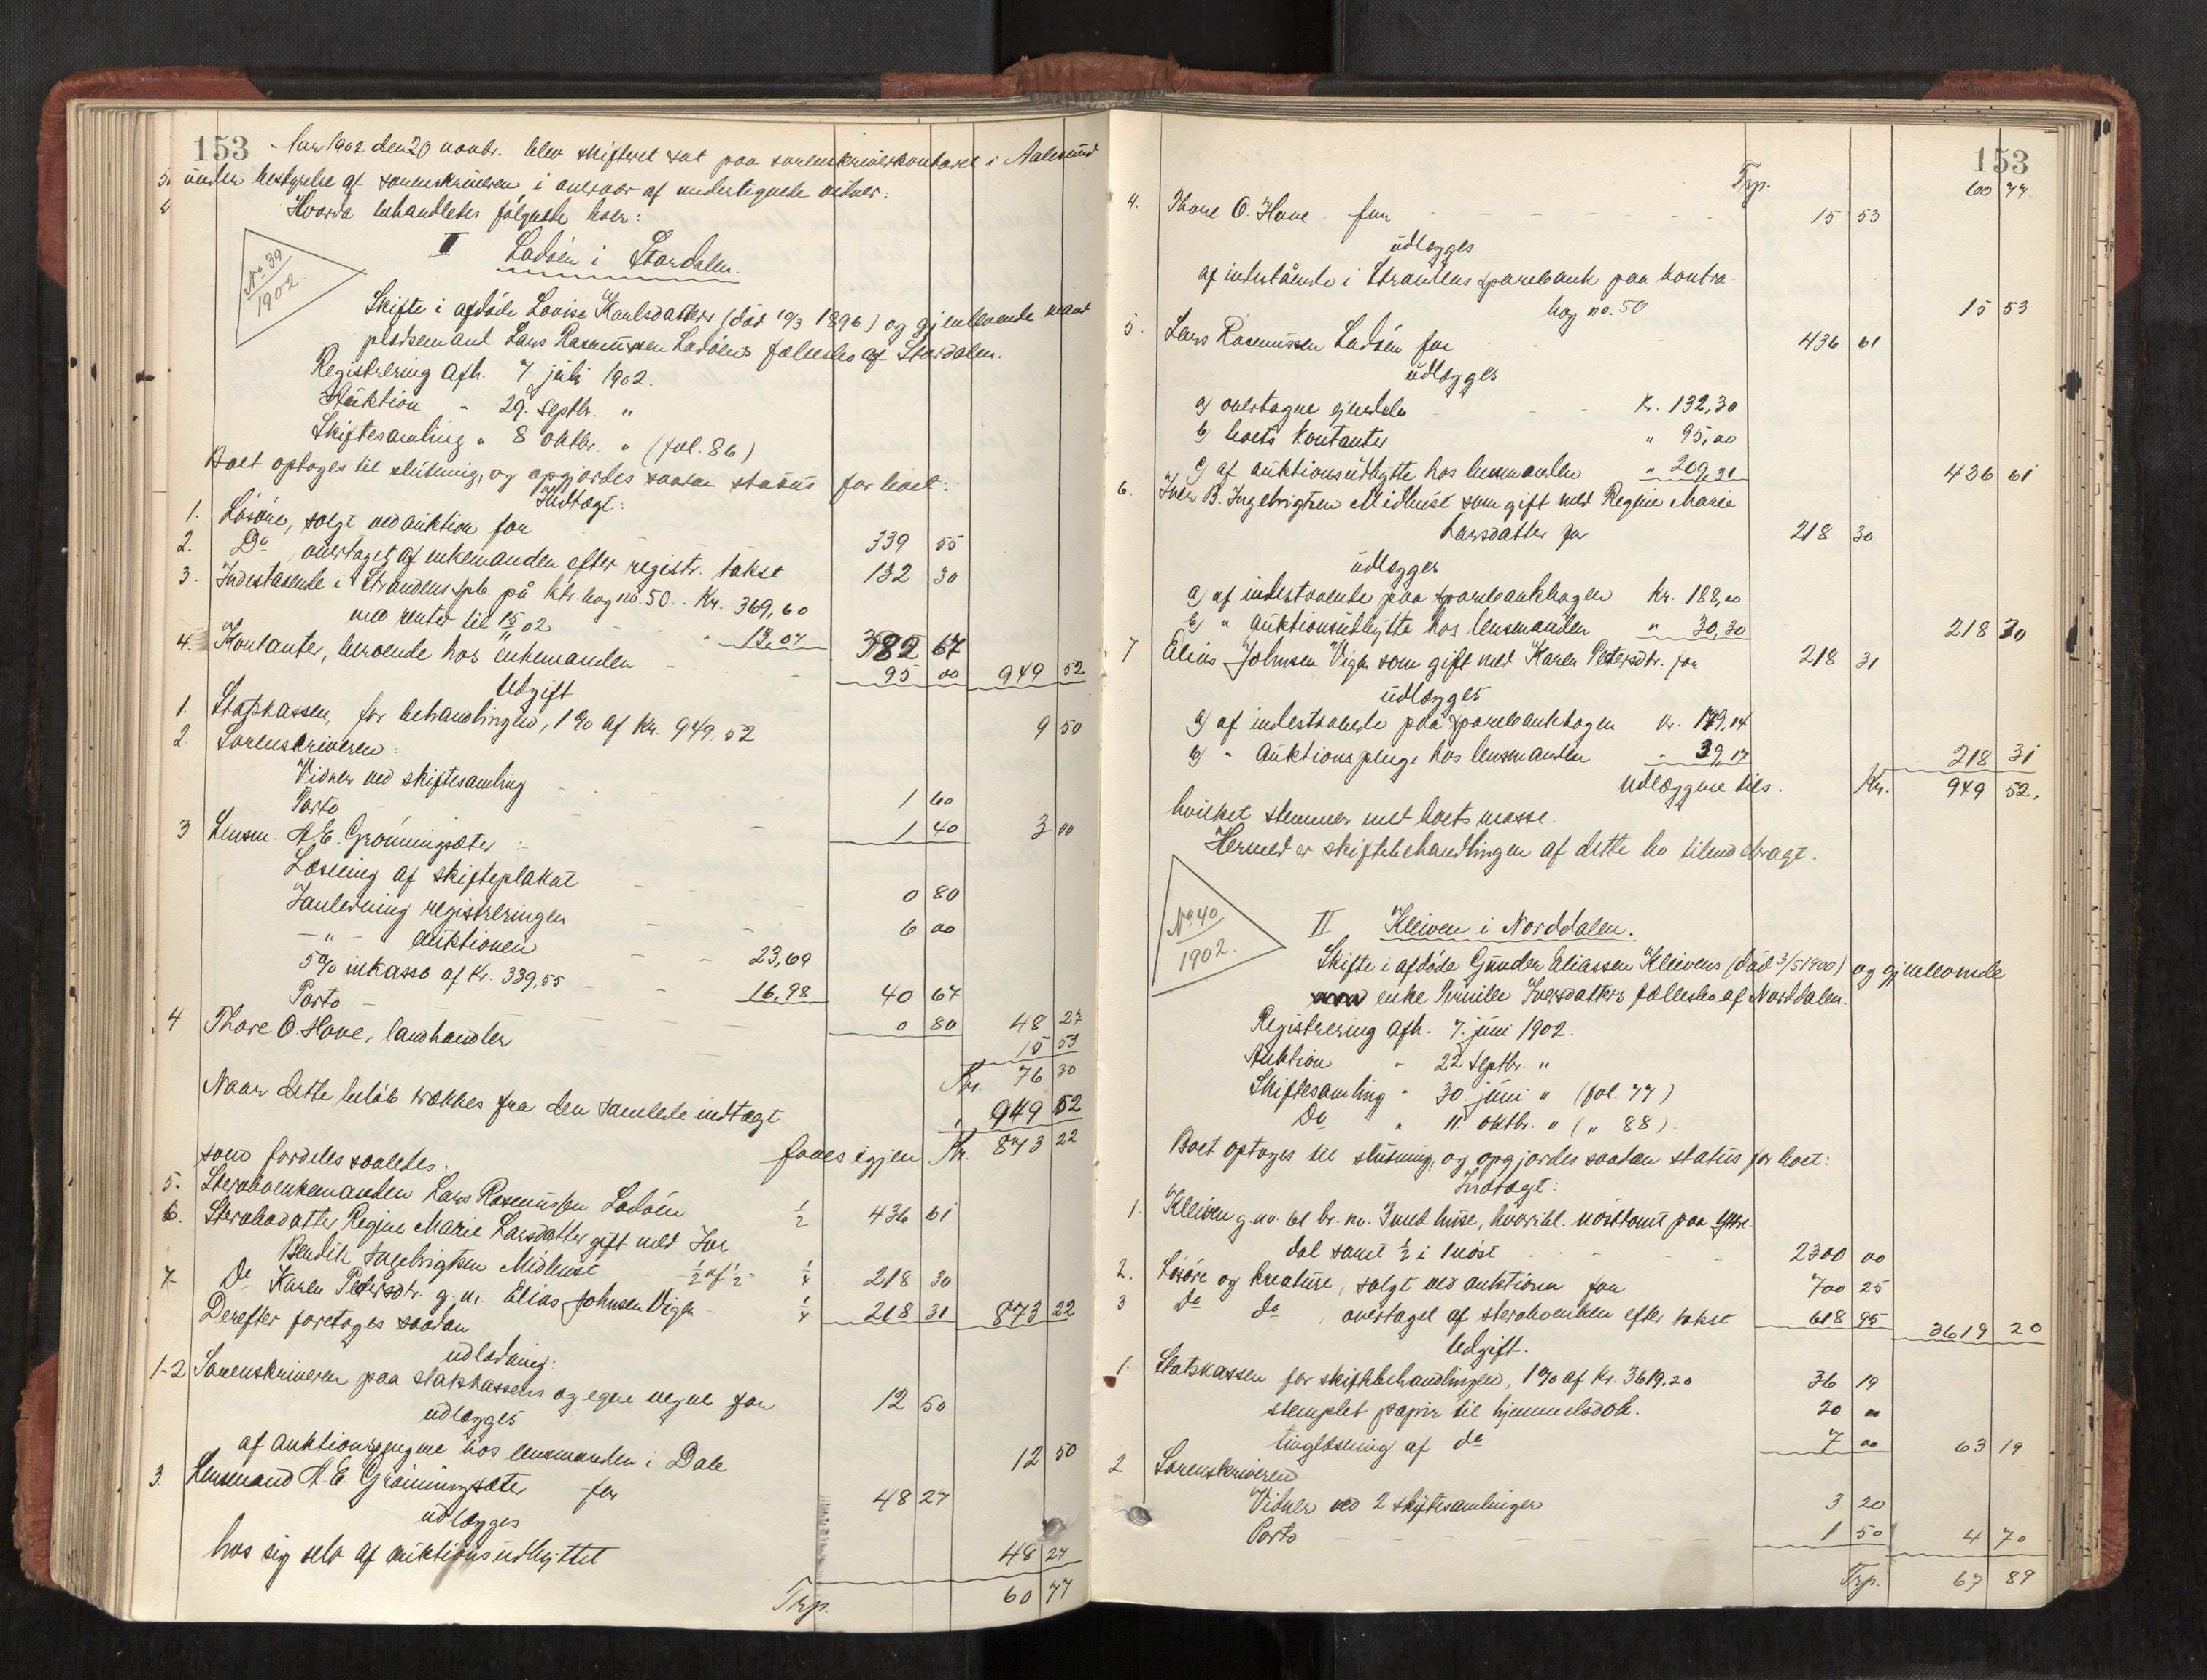 153
Aar 1902 den 20 novbr. blev skifteret sat paa sorenskriverkontoret i Aalesund
under bestyrelse af sorenskriveren i overvær af undertegnede vidner:
Hvorda behandledes følgende boer:
No 39
1902.
I Ladøen i Stordalen.
Skifte i afdøde Lovise Karlsdatters (død 10/3 1896) og gjenlevende mand
pladsemand Lars Rasmussen Ladøens fællesbo af Stordalen.
Registrering afh. 7 juli 1902.
Auktion " 29. septbr. "
Skiftesamling " 8 oktbr. " (fol. 86)
Boet optoges til slutning, og opgjordes saadan status for boet:
Indtægt:
1. Løsøre, solgt ved auktion for 339 55
2. Do, overtaget af enkemanden efter registr. takst 132 30
3. Indestaaende i Strandens spb. på ktr. bog no. 50 . . Kr. 369,60
med renter til 15/11 02 " 13,07 382 67
4. Kontanter, beroende hos enkemanden 95 00 949 52
Udgift
1. Statskassen, for behandlingen, 1% af Kr. 949.52 9 50
2. Sorenskriveren:
Vidner ved skiftesamling 1 60
Porto 1 40 3 00
3 Lensm. A. E. Grønningsæter :
Læsning af skifteplakat 0 80
I anledning registreringen 6 00
— " — auktionen 23,69
5% inkasso af Kr. 339,55 16,98 40 67
Porto 0 80 48 27
4 Thore O. Hove, landhandler 15 53
Kr. 76 30
Naar dette beløb trækkes fra den samlede indtægt " 949 52
faaes igjen Kr. 873 22
som fordeles saaledes:
5. Sterboenkemanden Lars Rasmussen Ladøen 1/2 436 61
6. Sterbodatter Regine Marie Larsdatter gift med Iver
Bendik Ingebrigtsen Midhust 1/2 af 1/2 = 1/4 218 30
7. Do Karen Petersdtr. g. m. Elias Johnsen Vigen 1/4 218 31 873 22
Derefter foretoges saadan
udlodning:
1-2 Sorenskriveren paa statskassens og egne vegne for 12 50
udlægges
af auktionspengene hos lensmanden i Dale 12 50
3. Lensmand A. E. Grønningsæter for 48 27
udlægges
hos sig selv af auktionsudbyttet 48 27
Trp. 60 77
153
Trp. 60 77.
4. Thore O. Hove for 15 53
udlægges
af indestående i Strandens sparebank paa kontra-
bog no. 50 15 53
5. Lars Rasmussen Ladøen for 436 61
udlægges
a) overtagne ejendele Kr. 132,30
b) boets kontanter " 95,00
c) af auktionsudbytte hos lensmanden " 209,31 436 61
6. Iver B. Ingebrigtsen Midhust som gift med Regine Marie
Larsdatter for 218 30
udlægges
a) af indestaaende paa sparebankbogen Kr. 188,00
b) " auktionsudbytte hos lensmanden " 30,30 218 30
7 Elias Johnsen Vigen som gift med Karen Petersdtr. for 218 31
udlægges
a) af indestaaende paa sparebankbogen Kr. 179,14
b) " auktionspenge hos lensmanden " 39,17 218 31
Udlæggene tils. Kr. 949 52.
hvilket stemmer med boets masse.
Hermed er skiftebehandlingen af dette bo tilendebragt.
No. 40
1902.
II Kleiven i Norddalen.
Skifte i afdøde Gunder Eliassen Kleivens (død 3/5 1900) og gjenlevende
enke Pernille Iversdatters fællesbo af Norddalen.
Registrering afh. 7. juni 1902.
Auktion " 22 septbr. "
Skiftesamling " 30. juni " (fol. 77)
Do " 11. oktbr. " ( " 88).
Boet optoges til slutning, og opgjordes saadan status for boet:
Indtægt:
1. Kleiven g. no. 61 br. no. 3 med huse, hvoribl. nøsttomt paa Ytre-
dal samt 1/2 i 1 nøst 2300 00
2. Løsøre og kreature, solgt ved auktionen for 700 25
3 do do, overtaget af sterboenken efter takst 618 95 3619 20
Udgift.
1. Statskassen for skiftebehandlingen, 1% af Kr. 3619.20 36 19
stemplet papir til hjemmelsdok. 20 00
tinglæsning af do 7 00 63 19
2. Sorenskriveren
Vidner ved 2 skiftesamlinger 3 20
Porto 1 50 4 70
Trp. 67 89